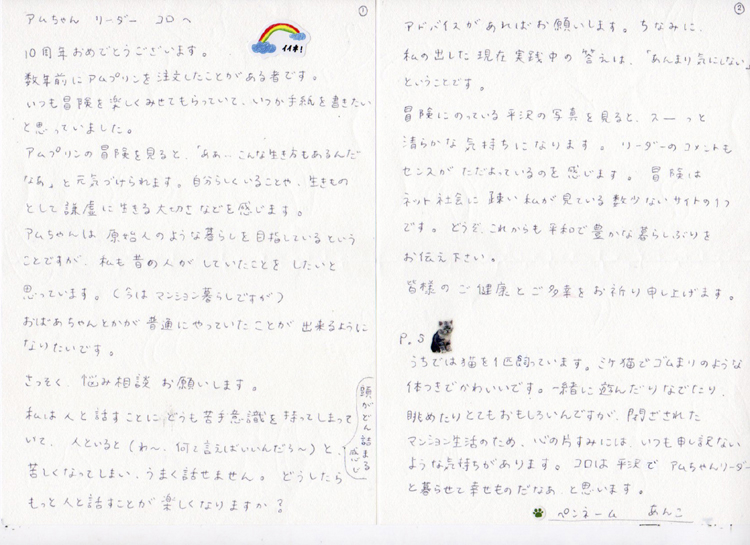 ①
アムちゃん リーダー コロ へ
イイネ!
10周年おめでとうございます。
数年前にアムプリンを注文したことがある者です。
いつも冒険を楽しくみせてもらっていて、いつか手紙を書きたい
と思っていました。
アムプリンの冒険を見ると、「あぁ…こんな生き方もあるんだ
なあ」と元気づけられます。自分らしくいることや、生きもの
として謙虚に生きる大切さなどを感じます。
アムちゃんは 原始人のような暮らしを目指しているという
ことですが、私も昔の人がしていたことをしたいと
思っています。(今はマンション暮らしですが)
おばあちゃんとかが普通にやっていたことが出来るように
なりたいです。
さっそく、悩み相談お願いします。
私は人と話すことにどうも苦手意識を持ってしまって
いて、人といると(わ〜、何て言えばいいんだろ〜)と、
頭がどん詰まる
感じ
苦しくなってしまい、うまく話せません。 どうしたら
もっと人と話すことが楽しくなりますか?
②
アドバイスがあればお願いします。ちなみに、
私の出した現在実践中の答えは、「あんまり気にしない」
ということです。
冒険にのっている平沢の写真を見ると、スーっと
清らかな気持ちになります。 リーダーのコメントも
センスがただよっているのを感じます。 冒険は
ネット社会に疎い私が見ている数少ないサイトの1つ
です。どうぞ、これからも平和で豊かな暮らしぶりを
お伝え下さい。
皆様のご健康とご多幸をお祈り申し上げます。
P.S
うちでは猫を1匹飼っています。ミケ猫でゴムまりのような
体つきでかわいいです。一緒に遊んだりなでたり、
眺めたりとてもおもしろいんですが、閉ざされた
マンション生活のため、心の片すみには、いつも申し訳ない
ような気持ちがあります。コロは平沢でアムちゃんリーダー
と暮らせて幸せものだなぁ、と思います。
ペンネーム あんこ